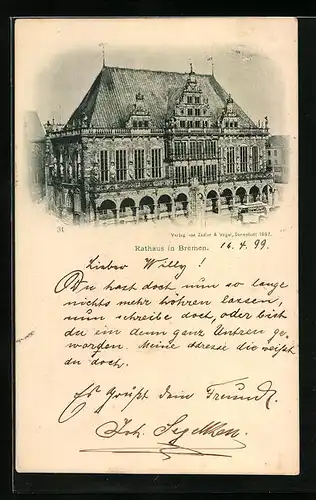 31
Verlag von Zedler & Vogel, Darmstadt 1897.
Rathaus in Bremen.
16. 4. 99.
Lieber Willy!
Du hast doch nun so lange
nichts mehr hören lassen,
nun schreibe doch, oder bist
du ein denn ganz Untreu ge-
worden. Meine Adresse die weißt
du doch.
Es grüßt dein Freund
Joh. Segelken.